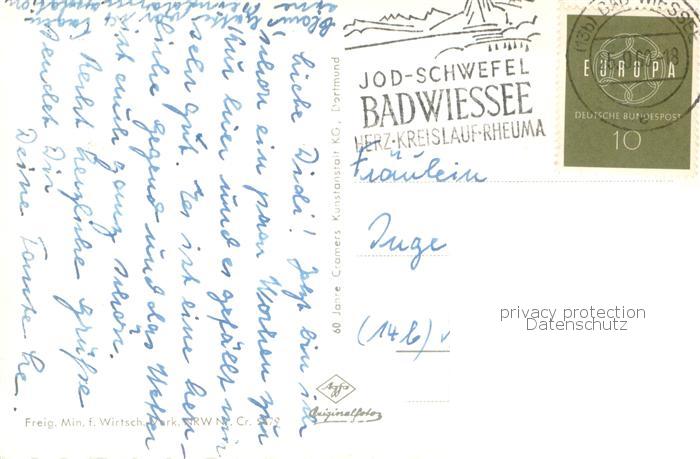 Liebe Didi! Jetzt bin ich
schon ein paar Wochen zur
Kur hier und es gefällt mir
sehr gut. Es ist eine herr-
liche Gegend und das Wetter
ist auch ganz schön.
Recht herzliche Grüße
sendet Dir
Deine Tante He.
60 Jahre Cramers Kunstanstalt KG., Dortmund
Freig. Min. f. Wirtsch. Verk. NRW Nr. Cr.
JOD-SCHWEFEL
BAD WIESSEE
HERZ·KREISLAUF·RHEUMA
(13b) BAD WIESSEE
EUROPA
DEUTSCHE BUNDESPOST
10
Fräulein
Inge
(14b)
privacy protection
Datenschutz
Agfa
Originalfoto